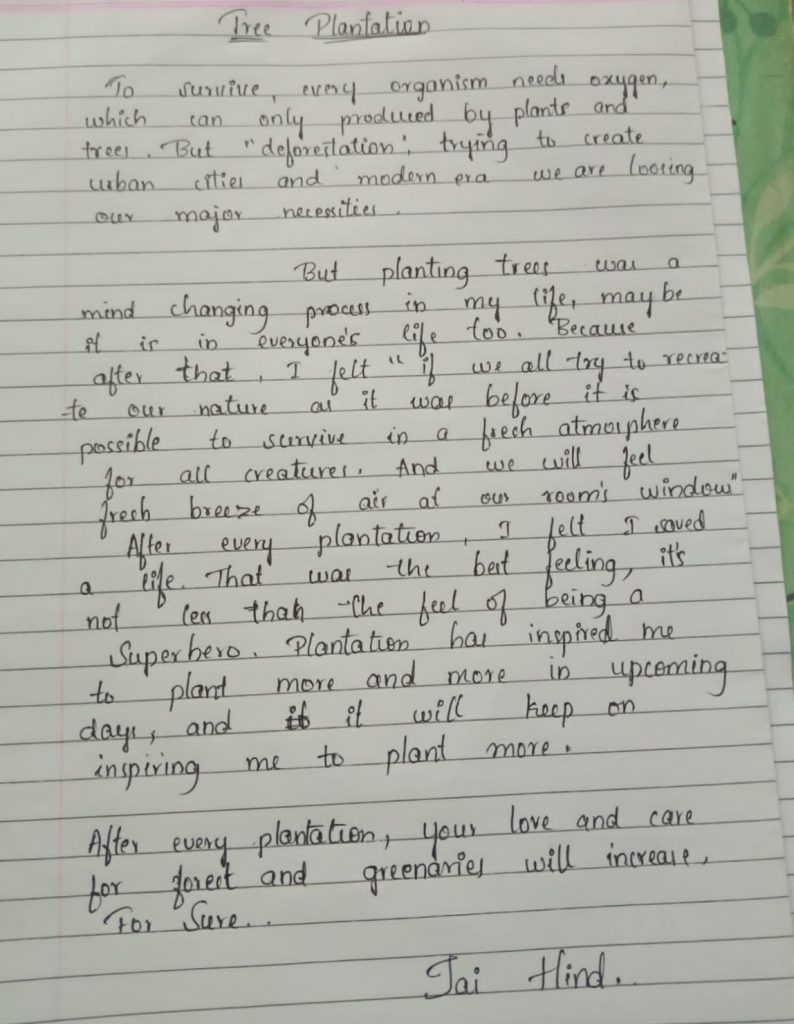 Tree Plantation
To survive, every organism needs oxygen,
which can only produced by plants and
trees. But "deforestation", trying to create
urban cities and modern era we are loosing
our major necessities.
But planting trees was a
mind changing process in my life, may be
it is in everyone's life too. Because
after that, I felt "if we all try to recrea-
te our nature as it was before it is
possible to survive in a fresh atmosphere
for all creatures. And we will feel
fresh breeze of air at our room's window"
After every plantation, I felt I saved
a life. That was the best feeling, it's
not less than the feel of being a
Superhero. Plantation has inspired me
to plant more and more in upcoming
days, and it will keep on
inspiring me to plant more.
After every plantation, your love and care
for forest and greenaries will increase,
For Sure..
Jai Hind.